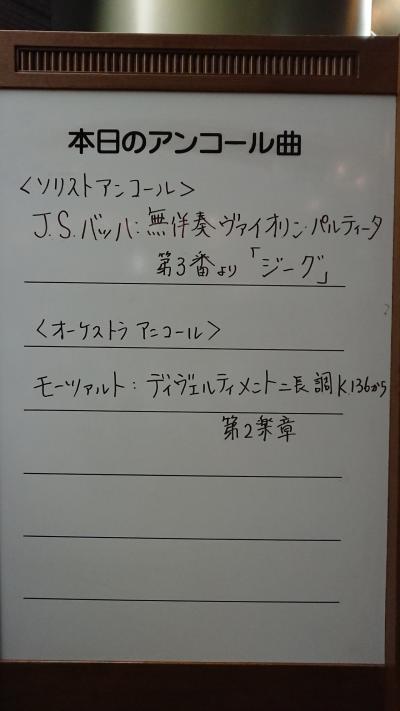 本日のアンコール曲
<ソリストアンコール>
J.S.バッハ:無伴奏ヴァイオリン・パルティータ
第3番より「ジーグ」
<オーケストラ アンコール>
モーツァルト:ディヴェルティメントニ長調K136から
第2楽章